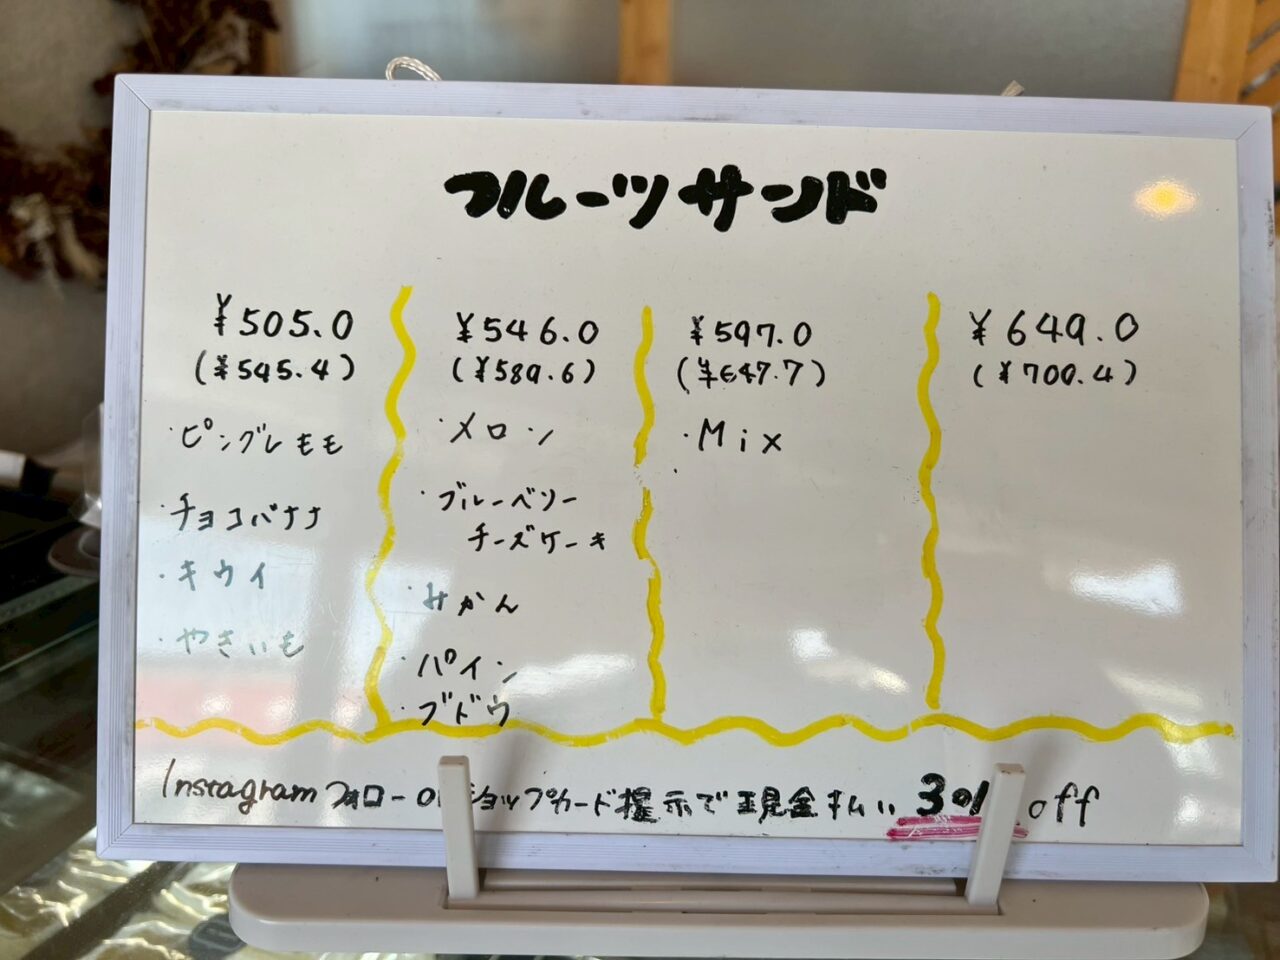 フルーツサンド
¥505.0
(¥545.4)
・ピングレもも
・チョコバナナ
・キウイ
・やきいも
¥546.0
(¥589.6)
・メロン
・ブルーベリー
チーズケーキ
・みかん
・パイン
・ブドウ
¥597.0
(¥647.7)
・Mix
¥649.0
(¥700.4)
Instagramフォローorショップカード提示で現金払い3% off